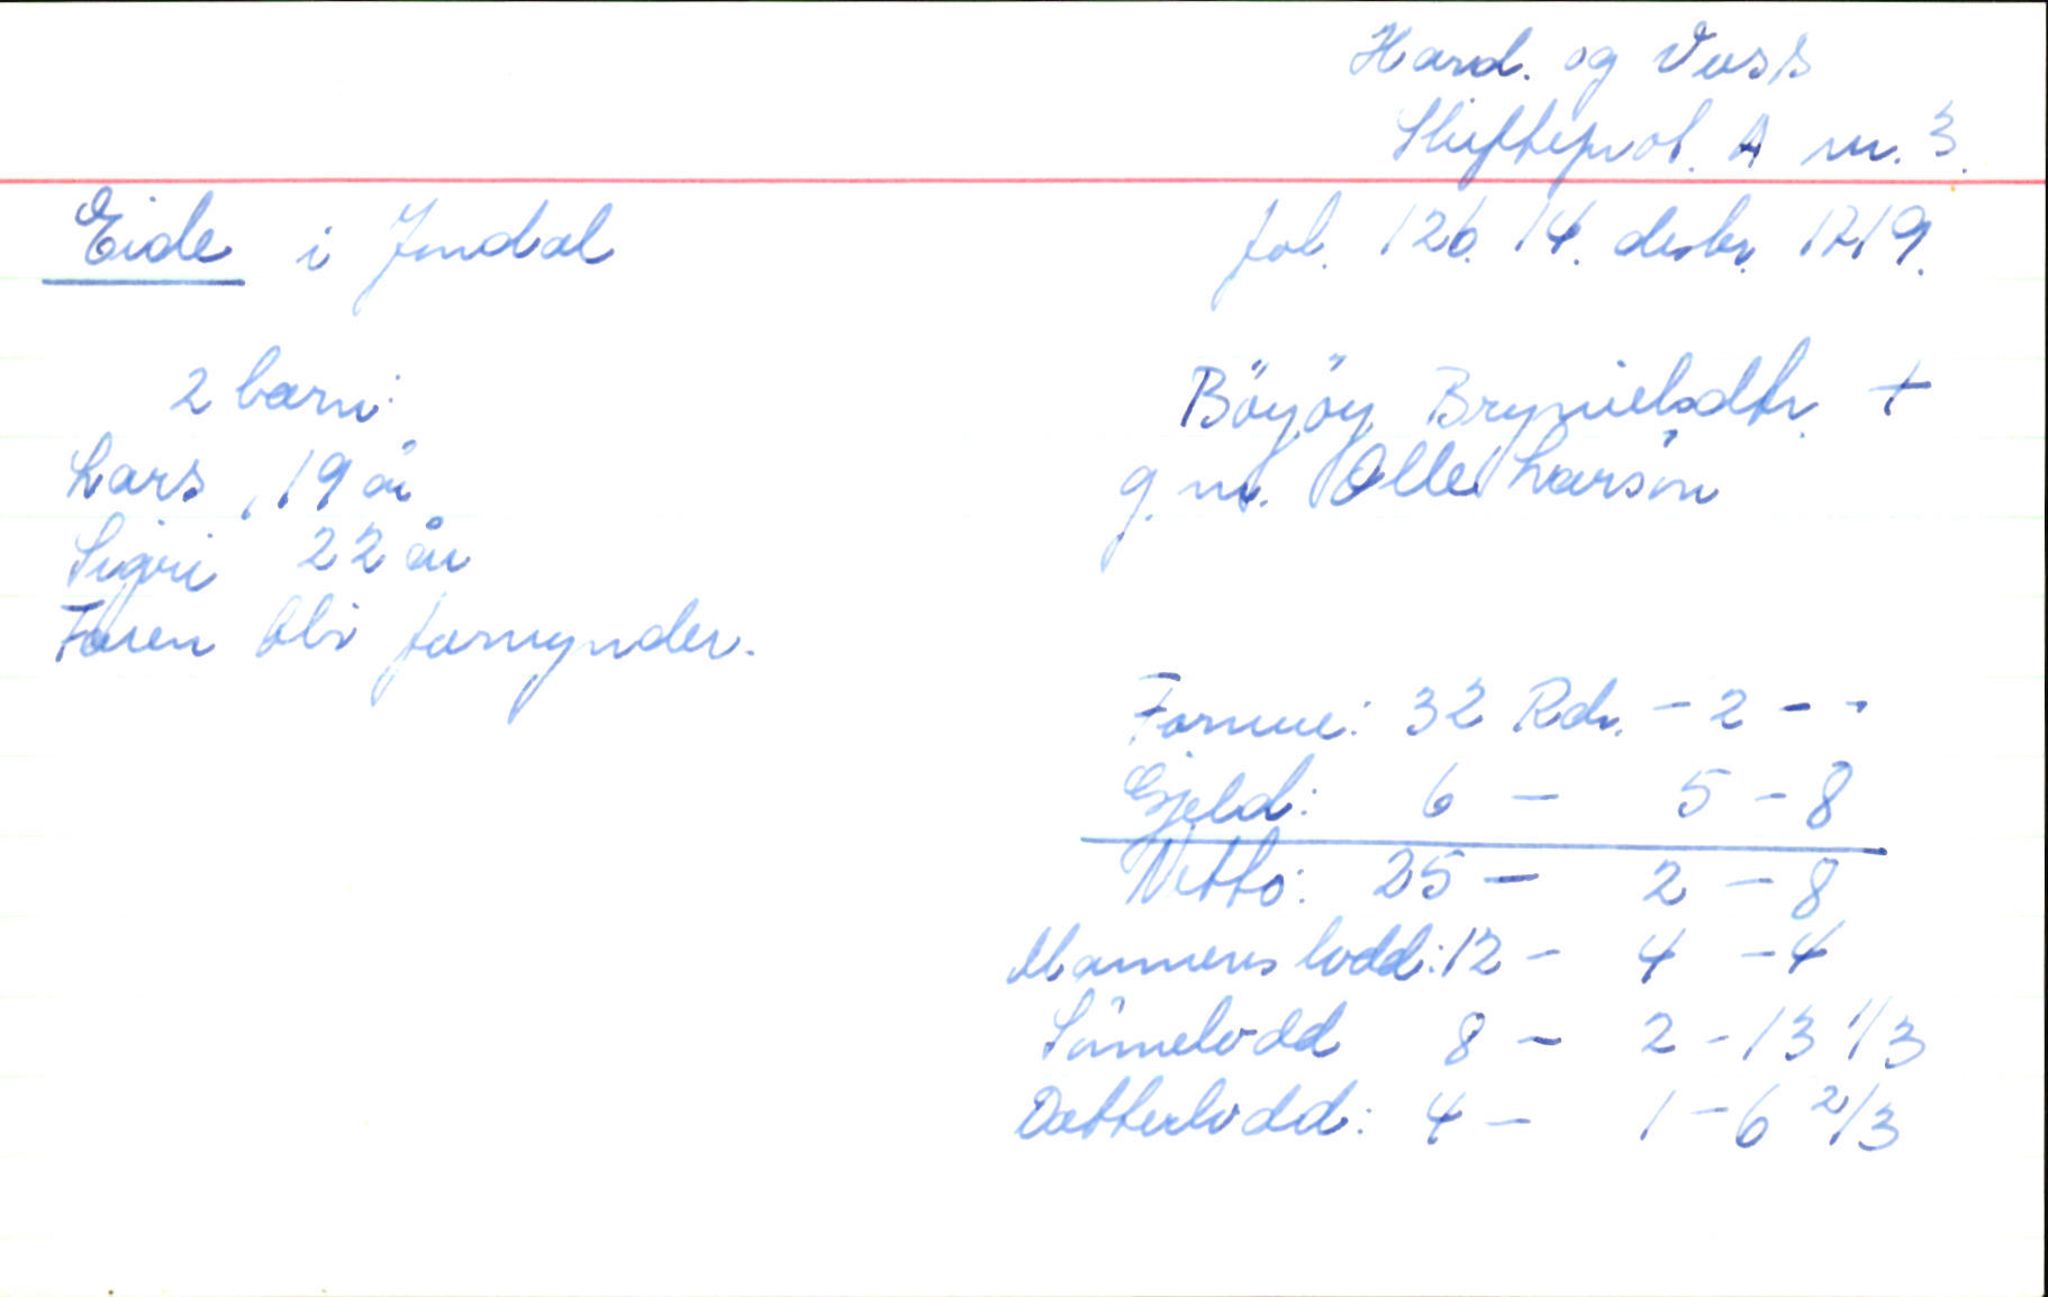 Hard. og Voss
Skifteprot. A nr. 3.
Eide i Jondal
fol. 126. 14. desbr. 1719.
2 barn:
Lars, 19 år
Sigri 22 år
Faren blir formynder.
Böyöy Brynielsdtr. +
g. m. Olle Larsön
Formue: 32 Rdr. - 2 - -
Gjeld: 6 - 5 - 8
Netto: 25 - 2 - 8
Mannens lodd: 12 - 4 - 4
Sönnelodd 8 - 2 - 13 1/3
Datterlodd: 4 - 1 - 6 2/3